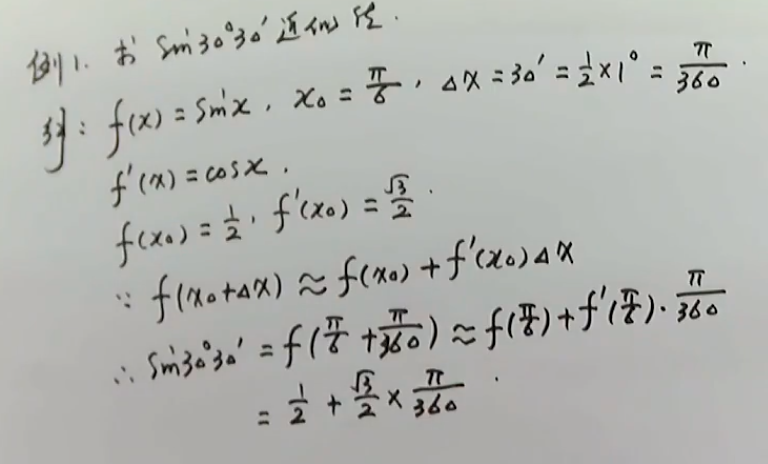 例1. 求 sin30°30′近似值.
解: f(x) = sinx, x₀ = π/6, Δx = 30′ = 1/2 × 1° = π/360.
f′(x) = cosx.
f(x₀) = 1/2, f′(x₀) = √3/2.
∵ f(x₀+Δx) ≈ f(x₀) + f′(x₀)Δx
∴ sin30°30′ = f(π/6 + π/360) ≈ f(π/6) + f′(π/6)·π/360
= 1/2 + √3/2 × π/360.